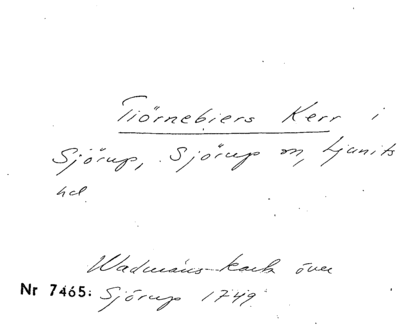 Tiörnebiers Kerr i
Sjörup, Sjörup sn, Ljunits
hd
Wadmans karta över
Nr 7465: Sjörup 1749